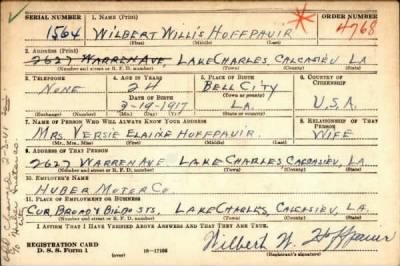 SERIAL NUMBER 1. NAME (Print) ORDER NUMBER
1564 WILBERT WILLIS HOFFPAUIR 4768
(First) (Middle) (Last)
2. ADDRESS (Print)
2627 WARREN AVE, LAKE CHARLES, CALCASIEU LA
(Number and street or R. F. D. number) (Town) (County) (State)
3. TELEPHONE 4. AGE IN YEARS 5. PLACE OF BIRTH 6. COUNTRY OF CITIZENSHIP
NONE 24 BELL CITY
DATE OF BIRTH (Town or county)
3-19-1917 LA. U.S.A.
(Mo.) (Day) (Yr.) (State or country)
7. NAME OF PERSON WHO WILL ALWAYS KNOW YOUR ADDRESS 8. RELATIONSHIP OF THAT PERSON
MRS. VERSIE ELAINE HOFFPAUIR WIFE
(Mr., Mrs., Miss) (First) (Middle) (Last)
9. ADDRESS OF THAT PERSON
2627 WARREN AVE LAKE CHARLES CALCASIEU, LA
(Number and street or R. F. D. number) (Town) (County) (State)
10. EMPLOYER'S NAME
HUBER MOTOR CO.
11. PLACE OF EMPLOYMENT OR BUSINESS
COR. BROAD & BILBO STS. LAKE CHARLES, CALCASIEU, LA.
(Number and street or R. F. D. number) (Town) (County) (State)
I AFFIRM THAT I HAVE VERIFIED ABOVE ANSWERS AND THAT THEY ARE TRUE.
REGISTRATION CARD
D. S. S. Form 1 16-17105 Wilbert W. Hoffpauir
(over) (Registrant's signature)